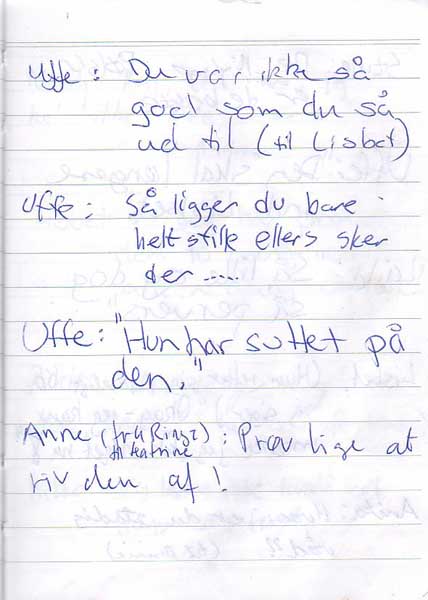 Uffe: Du var ikke så
god som du så
ud til (til Lisbet)
Uffe: Så ligger du bare
helt stille ellers sker
der .....
Uffe: "Hun har suttet på
den."
Anne (fra Ringe): Prøv lige at
til Katrine
riv den af!